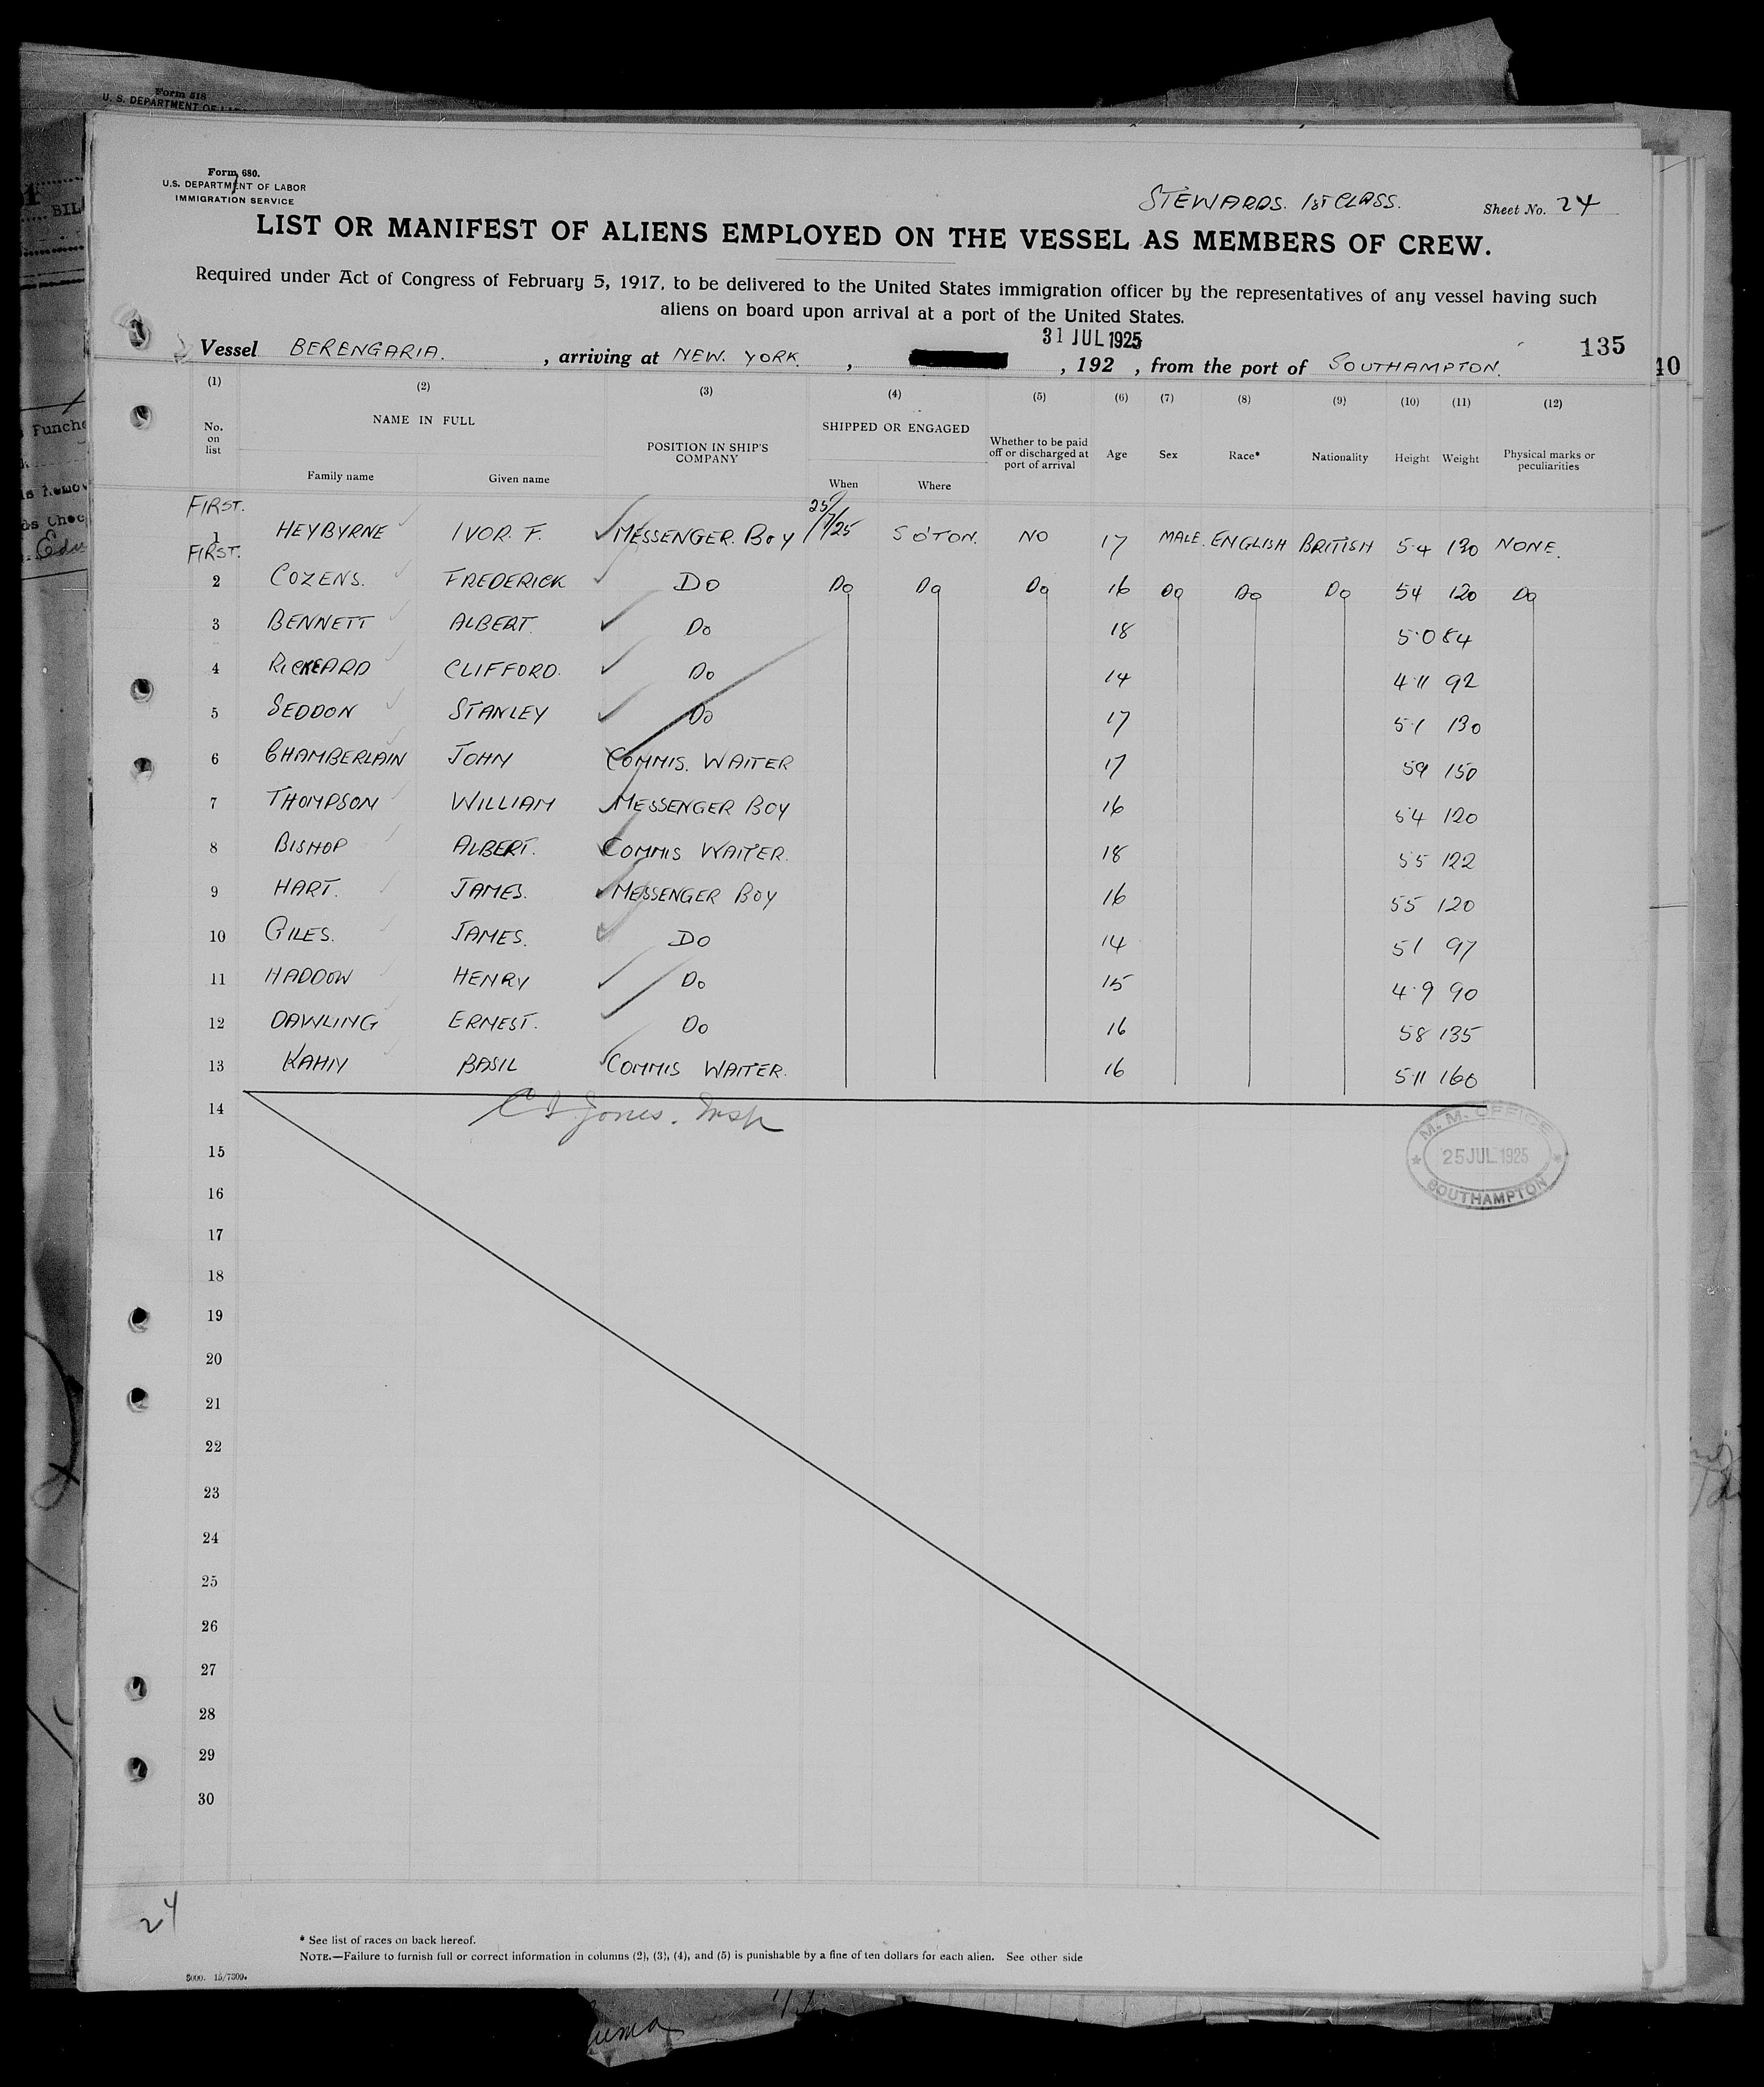 Form 518
U. S. DEPARTMENT OF
Form 680.
U.S. DEPARTMENT OF LABOR
IMMIGRATION SERVICE
STEWARDS. 1ST CLASS.
Sheet No. 24
LIST OR MANIFEST OF ALIENS EMPLOYED ON THE VESSEL AS MEMBERS OF CREW.
Required under Act of Congress of February 5, 1917, to be delivered to the United States immigration officer by the representatives of any vessel having such
aliens on board upon arrival at a port of the United States.
31 JUL 1925
135
Vessel BERENGARIA. , arriving at NEW. YORK. , , 192 , from the port of SOUTHAMPTON.
10
(1) (2) (3) (4) (5) (6) (7) (8) (9) (10) (11) (12)
No. on list NAME IN FULL Family name Given name POSITION IN SHIP'S COMPANY SHIPPED OR ENGAGED When Where Whether to be paid off or discharged at port of arrival Age Sex Race* Nationality Height Weight Physical marks or peculiarities
FIRST.
1 HEYBYRNE IVOR. F. MESSENGER BOY 25/7/25 SO'TON. NO 17 MALE. ENGLISH BRITISH 5·4 130 NONE.
FIRST.
2 COZENS. FREDERICK DO Do Do Do 16 Do Do Do 54 120 Do
3 BENNETT ALBERT. Do 18 5·0 84
4 RICKEARD CLIFFORD. Do 14 4·11 92
5 SEDDON STANLEY Do 17 5·1 130
6 CHAMBERLAIN JOHN COMMIS. WAITER 17 59 150
7 THOMPSON WILLIAM MESSENGER BOY 16 54 120
8 BISHOP ALBERT. COMMIS WAITER. 18 55 122
9 HART. JAMES. MESSENGER BOY 16 55 120
10 GILES. JAMES. DO 14 51 97
11 HADDOW HENRY Do 15 4·9 90
12 DAWLING ERNEST. Do 16 58 135
13 KAHN BASIL COMMIS WAITER. 16 5·11 160
14
Jones. Insp
M. M. OFFICE
25 JUL 1925
SOUTHAMPTON
15
16
17
18
19
20
21
22
23
24
25
26
27
28
29
30
24
* See list of races on back hereof.
NOTE.—Failure to furnish full or correct information in columns (2), (3), (4), and (5) is punishable by a fine of ten dollars for each alien. See other side
5000. 15/7309.